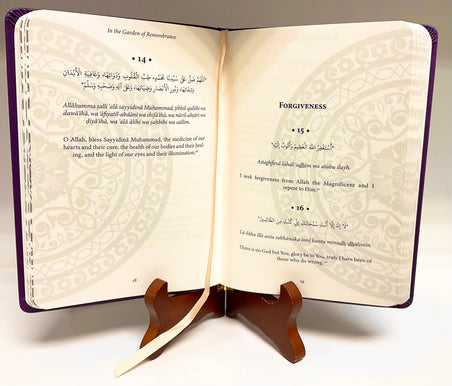 In the Garden of Remembrance
• 14 •
Allāhumma ṣalli ʿalā sayyidinā Muḥammad, ṭibbil-qulūbi wa
dawāʾihā, wa ʿāfiyatil-abdāni wa shifāʾihā, wa nūril-abṣāri wa
ḍiyāʾihā, wa ʿalā ālihi wa ṣaḥbihi wa sallim.
O Allah, bless Sayyidinā Muḥammad, the medicine of our
hearts and their cure, the health of our bodies and their heal-
ing, and the light of our eyes and their illumination.
18
Forgiveness
• 15 •
"أَسْتَغْفِرُ اللهَ الْعَظِيمَ وَأَتُوبُ إِلَيْهِ"
Astaghfirul-lāhal-ʿaḍhīm wa atūbu ilayh.
I seek forgiveness from Allah, the Magnificent and I
repent to Him.
• 16 •
"لَا إِلٰهَ إِلَّا أَنْتَ سُبْحَانَكَ إِنِّي كُنْتُ مِنَ الظَّالِمِينَ"
Lā ilāha illā anta subḥānaka innī kuntu minaḍh-ḍhālimīn.
There is no God but You, glory be to You, truly I have been of
those who do wrong.
19